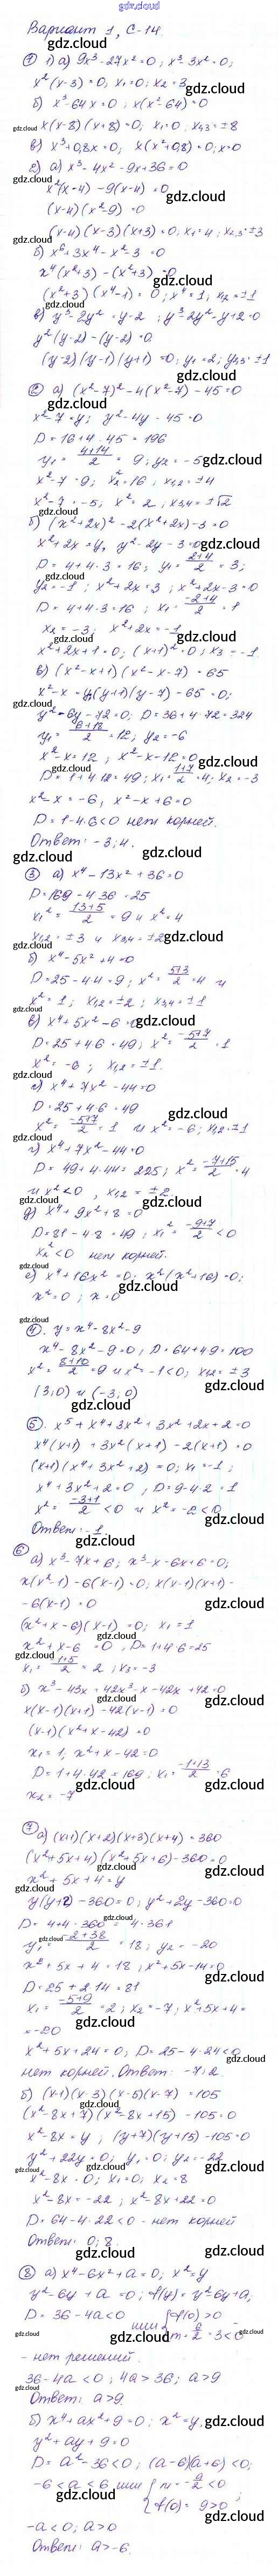 gdz.cloud
Вариант 1, С-14.
① 1) а) 9x³-27x²=0; x³-3x²=0;
x²(x-3)=0; x₁=0; x₂=3
б) x³-64x=0; x(x²-64)=0
x(x-8)(x+8)=0; x₁=0; x₂,₃=±8
в) x³+0,8x=0; x(x²+0,8)=0; x=0
2) а) x³-4x²-9x+36=0
x²(x-4)-9(x-4)=0
(x-4)(x²-9)=0
(x-4)(x-3)(x+3)=0; x₁=4; x₂,₃=±3
б) x⁶+3x⁴-x²-3=0
x⁴(x²+3)-(x²+3)=0
(x²+3)(x⁴-1)=0; x⁴=1; x₁,₂=±1
в) y³-2y²=y-2; y³-2y²-y+2=0
y²(y-2)-(y-2)=0
(y-2)(y-1)(y+1)=0; y₁=2; y₂,₃=±1
② а) (x²-7)²-4(x²-7)-45=0
x²-7=y; y²-4y-45=0
D=16+4·45=196
y₁=(4+14)/2=9; y₂=-5
x²-7=9; x²=16; x₁,₂=±4
x²-7=-5; x²=2; x₃,₄=±√2
б) (x²+2x)²-2(x²+2x)-3=0
x²+2x=y, y²-2y-3=0
D=4+4·3=16; y₁=(2+4)/2=3;
y₂=-1; x²+2x=3; x²+2x-3=0
D=4+4·3=16; x₁=(-2+4)/2=1
x₂=-3; x²+2x=-1
x²+2x+1=0; (x+1)²=0; x₃=-1
в) (x²-x+1)(x²-x-7)=65
x²-x=y; (y+1)(y-7)-65=0;
y²-6y-72=0; D=36+4·72=324
y₁=(6+18)/2=12; y₂=-6
x²-x=12; x²-x-12=0
D=1+4·12=49; x₁=(1+7)/2=4; x₂=-3
x²-x=-6, x²-x+6=0
D=1-4·6<0 нет корней.
Ответ: -3; 4.
③ а) x⁴-13x²+36=0
D=169-4·36=25
x₁²=(13+5)/2=9 и x²=4
x₁,₂=±3 и x₃,₄=±2
б) x⁴-5x²+4=0
D=25-4·4=9; x²=(5+3)/2=4 и
x²=1; x₁,₂=±2; x₃,₄=±1
в) x⁴+5x²-6=0
D=25+4·6=49; x²=(-5+7)/2=1
x²=-6; x₁,₂=±1.
г) x⁴+7x²-44=0
D=25+4·6=49
x²=(-5+7)/2=1 и x²=-6; x₁,₂=±1
г) x⁴+7x²-44=0
D=49+4·44=225; x²=(-7+15)/2=4
и x²<0, x₁,₂=±2
д) x⁴+9x²+8=0
D=81-4·8=49; x₁²=(-9+7)/2<0
x₂²<0 нет корней.
е) x⁴+16x²=0; x²(x²+16)=0;
x²=0; x=0
④. y=x⁴-8x²-9
x⁴-8x²-9=0; D=64+4·9=100
x²=(8+10)/2=9 и x²=-1<0; x₁,₂=±3
(3;0) и (-3;0)
⑤. x⁵+x⁴+3x³+3x²+2x+2=0
x⁴(x+1)+3x²(x+1)-2(x+1)=0
(x+1)(x⁴+3x²+2)=0; x₁=-1;
x⁴+3x²+2=0, D=9-4·2=1
x²=(-3+1)/2<0 и x²=-2<0
Ответ: -1
⑥
а) x³-7x+6; x³-x-6x+6=0;
x(x²-1)-6(x-1)=0; x(x-1)(x+1)-
-6(x-1)=0
(x²+x-6)(x-1)=0; x₁=1
x²+x-6=0, D=1+4·6=25
x₁=(-1+5)/2=2; x₃=-3
б) x³-43x+42x³-x-42x+42=0
x(x-1)(x+1)-42(x-1)=0
(x-1)(x²+x-42)=0
x₁=1, x²+x-42=0
D=1+4·42=169; x₁=(-1+13)/2=6
x₂=-7
⑦
а) (x+1)(x+2)(x+3)(x+4)=360
(x²+5x+4)(x²+5x+6)-360=0
x²+5x+4=y
y(y+2)-360=0; y²+2y-360=0
D=4+4·360=4·361
y₁=(-2+38)/2=18; y₂=-20
x²+5x+4=18; x²+5x-14=0
D=25+2·14=81
x₁=(-5+9)/2=2; x₂=-7; x²+5x+4=
=-20
x²+5x+24=0; D=25-4·24<0
нет корней. Ответ: -7; 2.
б) (x-1)(x-3)(x-5)(x-7)=105
(x²-8x+7)(x²-8x+15)-105=0
x²-8x=y; (y+7)(y+15)-105=0
y²+22y=0; y₁=0; y₂=-22
x²-8x=0; x₁=0; x₂=8
x²-8x=-22; x²-8x+22=0
D=64-4·22<0 - нет корней
Ответ: 0; 8.
⑧ а) x⁴-6x²+a=0; x²=y
y²-6y+a=0; f(y)=y²-6y+a;
D=36-4a<0 или { f(0)>0
m=6/2=3<0 -
- нет решений.
36-4a<0; 4a>36; a>9
Ответ: a>9.
б) x⁴+ax²+9=0; x²=y,
y²+ay+9=0
D=a²-36<0; (a-6)(a+6)<0;
-6<a<6 или { m=-a/2<0
f(0)=9>0;
-a<0; a>0
Ответ: a>-6.